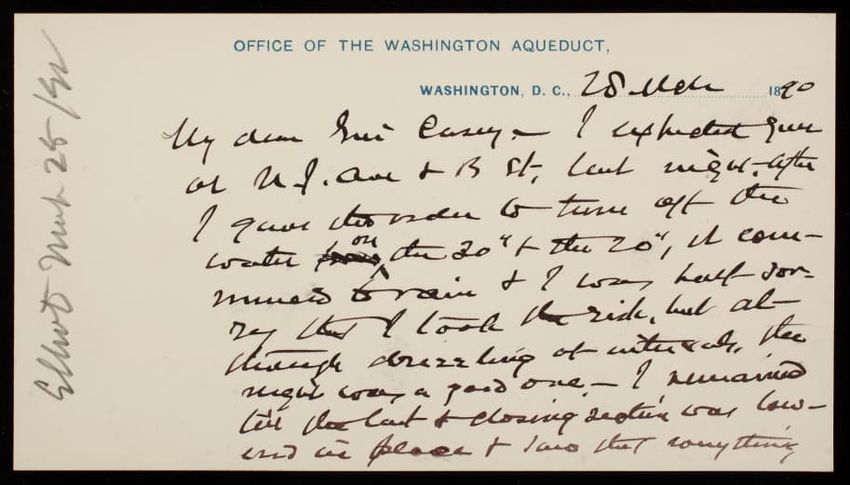 OFFICE OF THE WASHINGTON AQUEDUCT,
WASHINGTON, D. C., 28 Mch 1890
My dear Genl Casey — I expected you
at N.J. Ave & B St, last night. After
I gave the order to turn off the
water from on the 30" & the 20", it com-
menced to rain & I was half sor-
ry that I took the risk, but al-
though drizzling at intervals, the
night was a good one — I remained
till the last & closing section was low-
ered in place & saw that everything
Elliot Mch 28/90